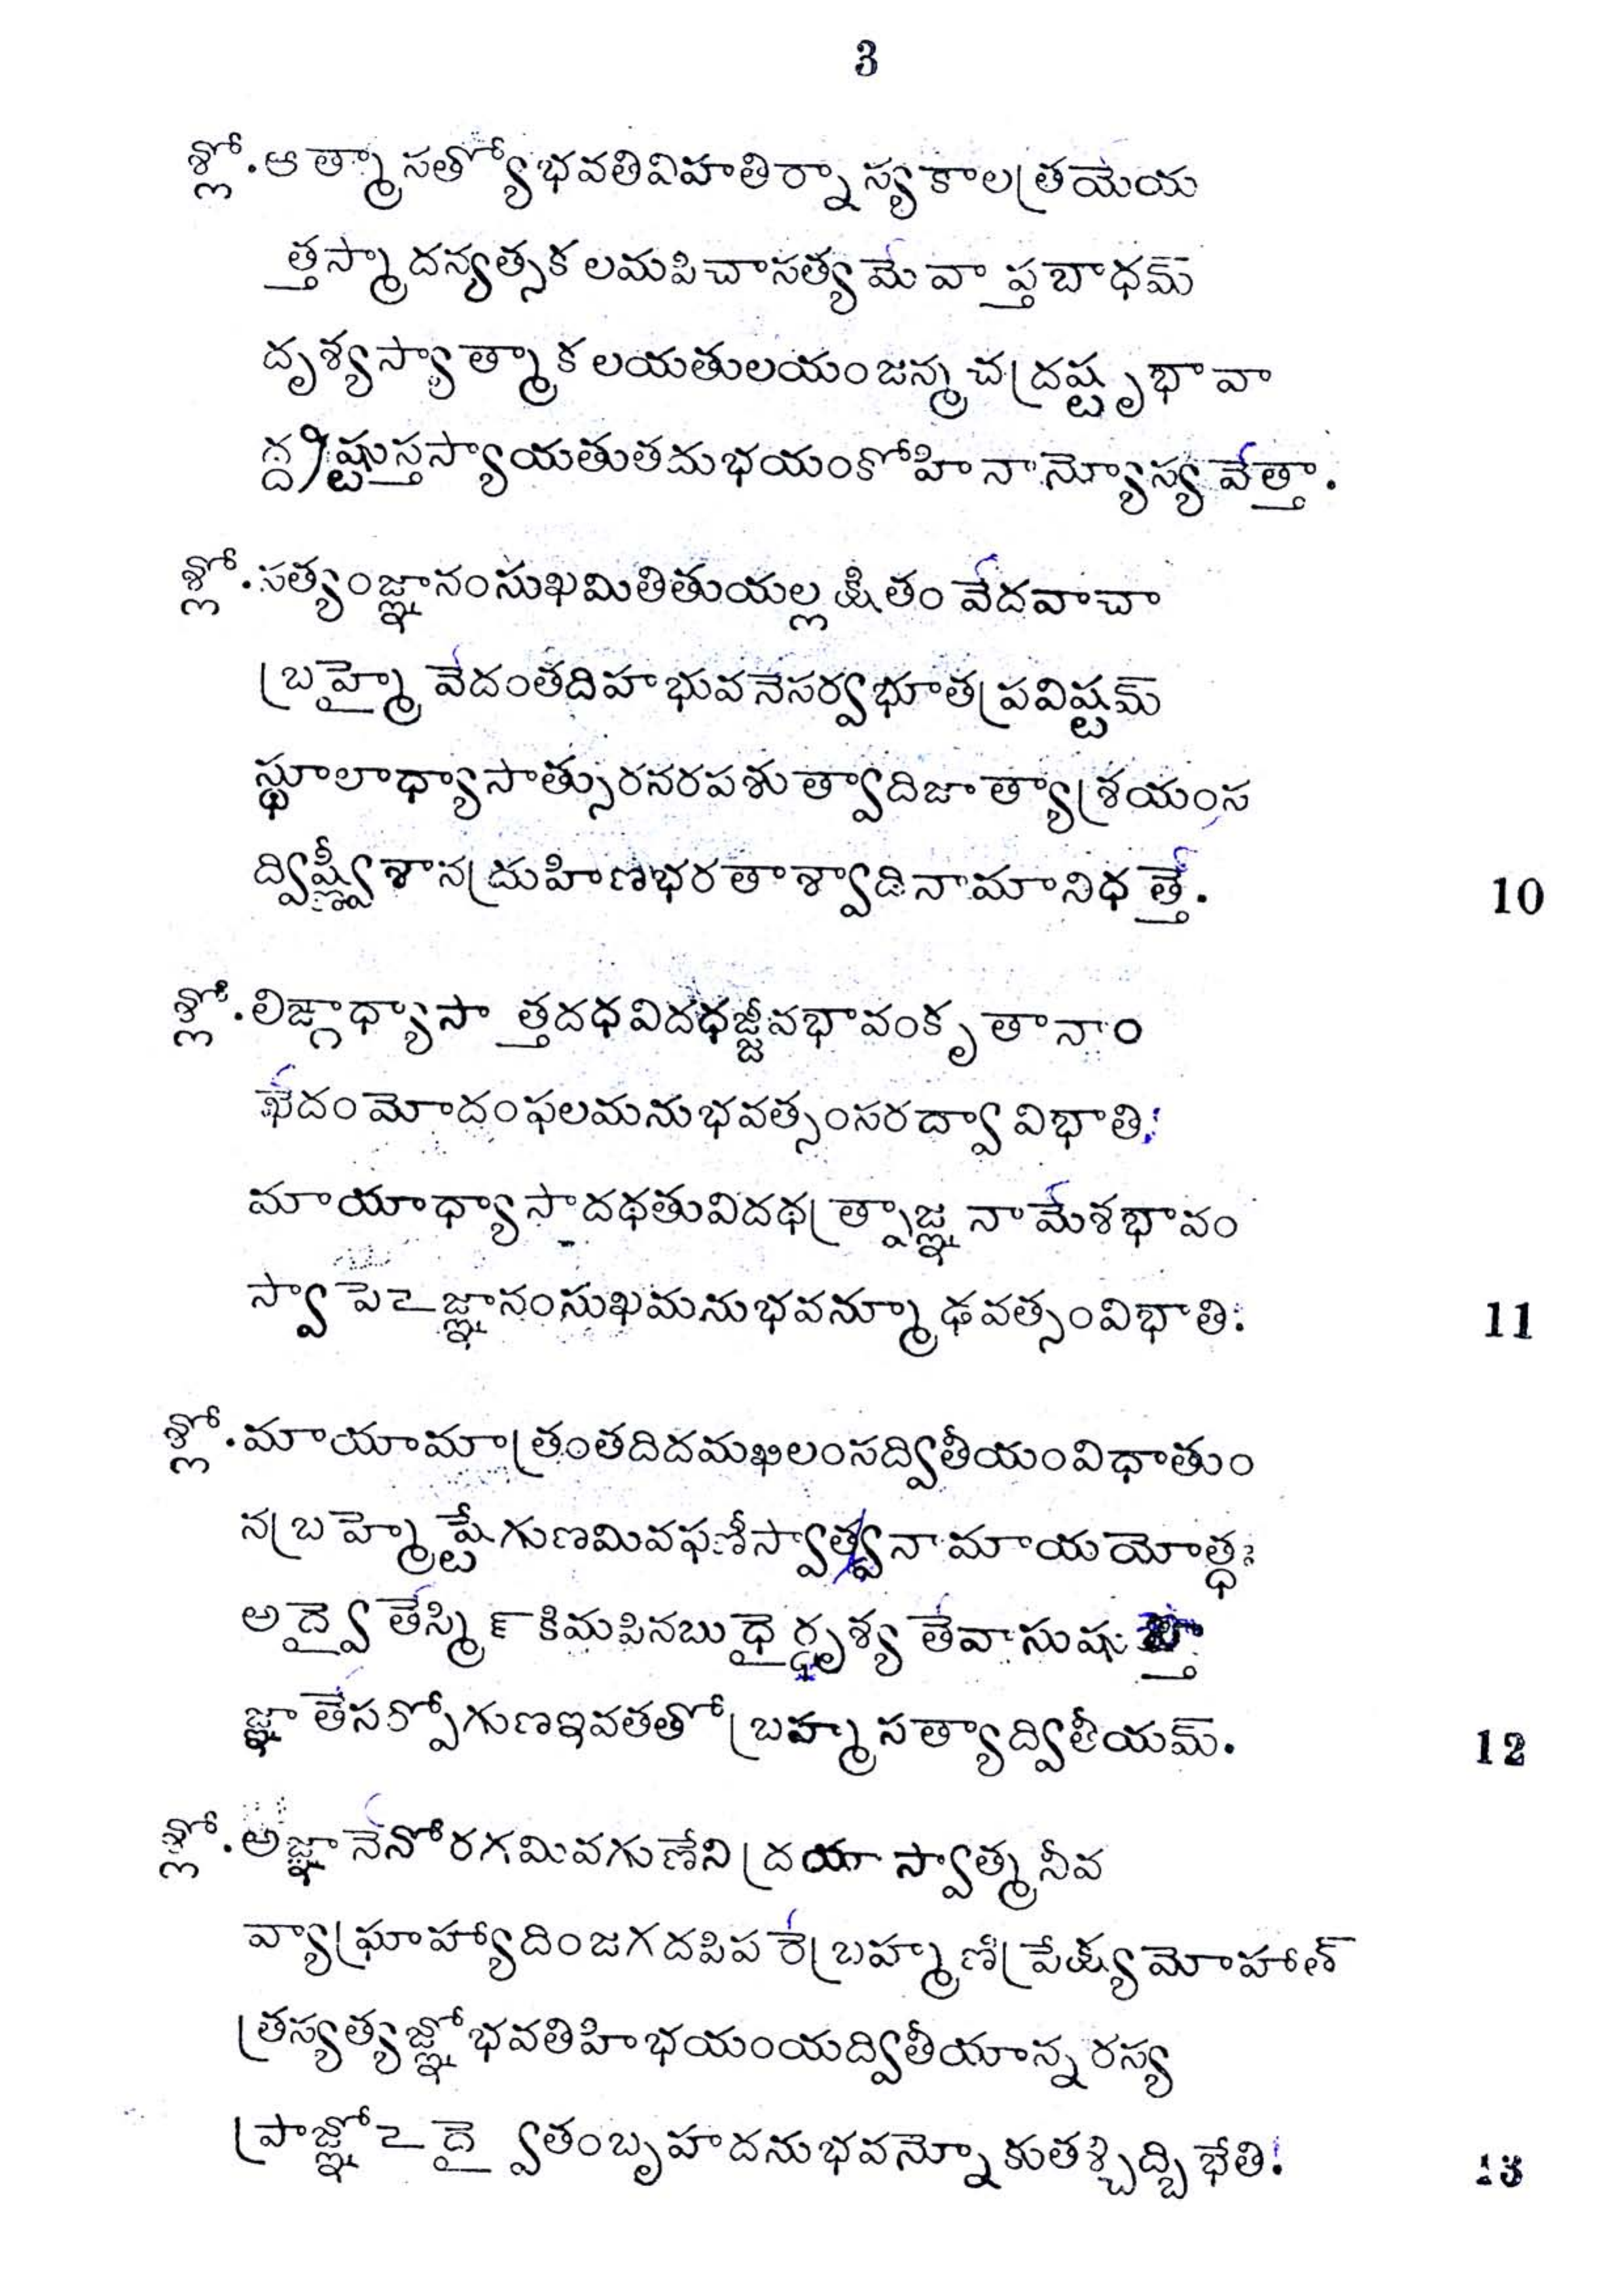 3
శ్లో. ఆత్మా సత్యోభవతివిహతిర్నాస్యకాలత్రయేయ
త్తస్మాదన్యత్సకలమపిచాసత్యమేవాప్తబాధమ్
దృశ్యస్యాత్మాకలయతులయంజన్మచద్రష్టృభావా
ద్ద్రష్టుస్తస్యాయతుతదుభయంకోహినాన్యోస్యవేత్తా.
శ్లో. సత్యంజ్ఞానంసుఖమితితుయల్లక్షితం వేదవాచా
బ్రహ్మైవేదంతదిహభువనేసర్వభూతప్రవిష్టమ్
స్థూలాధ్యాసాత్సురనరపశుత్వాదిజాత్యాశ్రయంస
ద్విష్ణ్వీశానద్రుహిణభరతాశ్వాదినామానిధత్తే. 10
శ్లో. లిఙ్గాధ్యాసాత్తదథవిదధజ్జీవభావంకృతానాం
ఖేదంమోదంఫలమనుభవత్సంసరద్వావిభాతి!
మాయాధ్యాసాదథతువిదథత్ప్రాజ్ఞనామేశభావం
స్వాపేఽజ్ఞానంసుఖమనుభవన్మూఢవత్సంవిభాతి: 11
శ్లో. మాయామాత్రంతదిదమఖిలంసద్వితీయంవిధాతుం
నబ్రహ్మేష్టేగుణమివఫణీస్వాత్మనామాయయోత్థః
అద్వైతేస్మిన్ కిమపినబుధైర్దృశ్యతేవాసుషుప్తౌ
జ్ఞాతేసర్పోగుణఇవతతోబ్రహ్మసత్యాద్వితీయమ్. 12
శ్లో. అజ్ఞానేనోరగమివగుణేనిద్రయాస్వాత్మనీవ
వ్యాఘ్రాహ్యాదింజగదపిపరేబ్రహ్మణిప్రేక్ష్యమోహాత్
త్రస్యత్యజ్ఞోభవతిహిభయంయద్వితీయాన్నరస్య
ప్రాజ్ఞోఽద్వైతంబృహదనుభవన్నోకుతశ్చిద్బిభేతి! 13